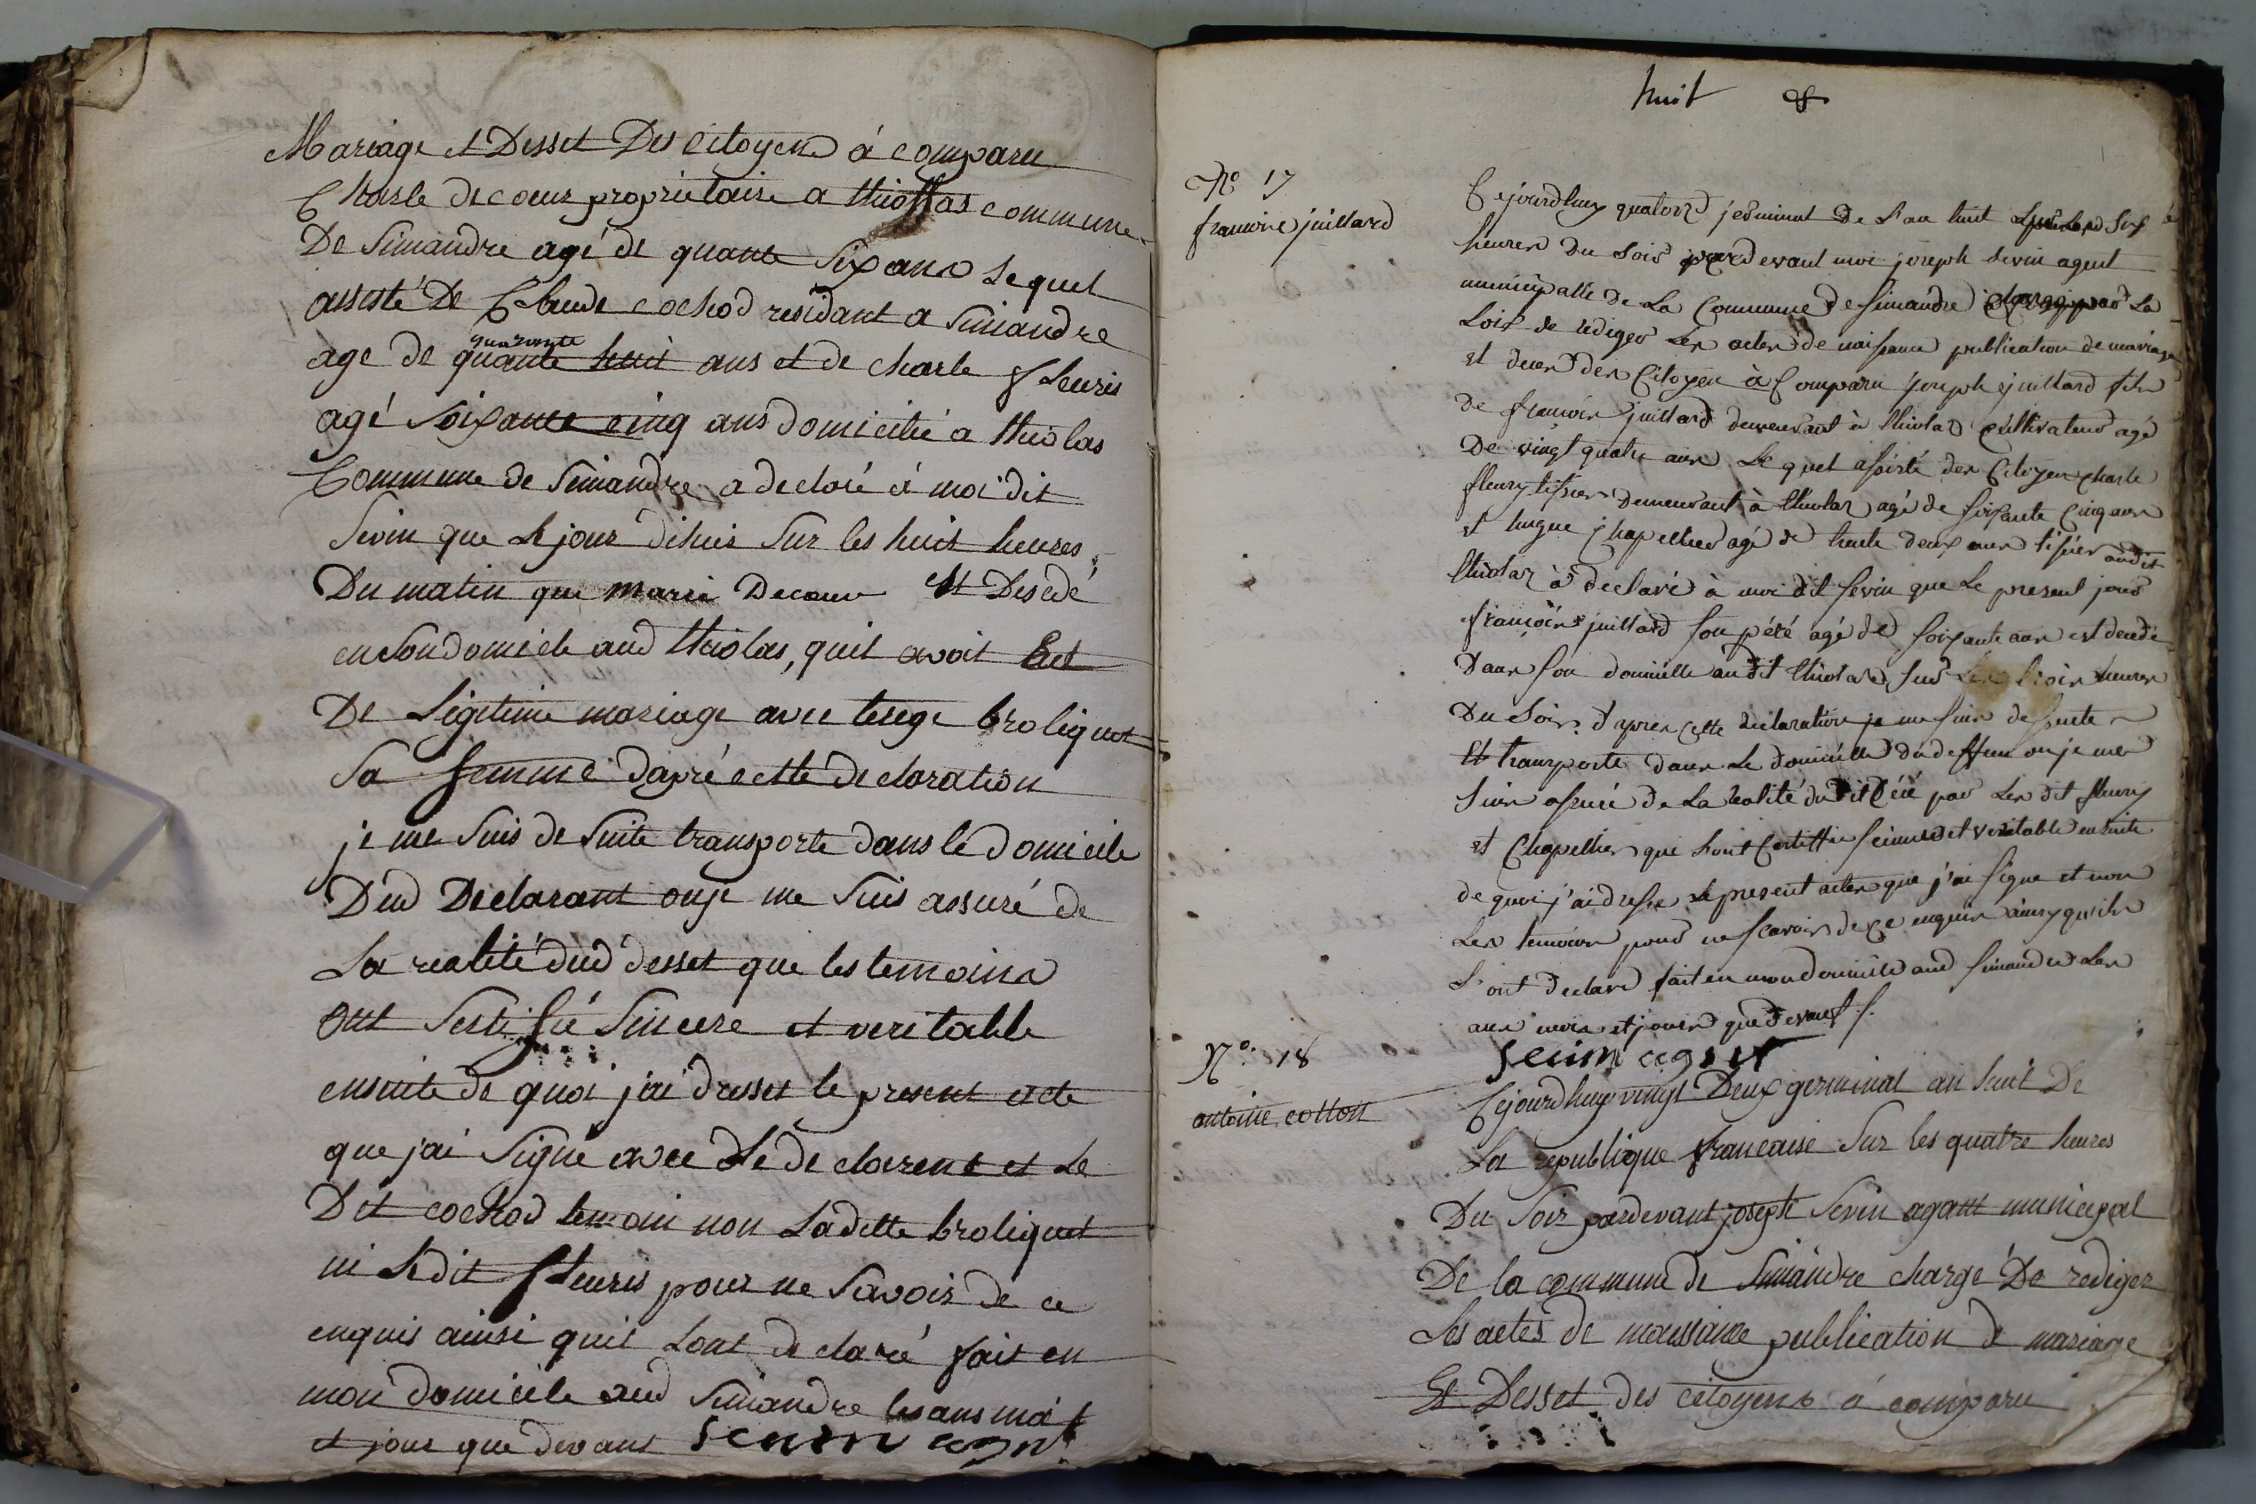 Mariage et Desset Des Citoyens á comparu
Charle decoeur proprietaire a thiollas commune
De Simandre agé de quante Six ans Lequel
assisté De Claude cochod residant a Simandre
quarante
age de quante huit ans et de charle fleuris
agé Soixante cinq ans domicilié a thiolas
Commune de Simandre a declaré á moi dit
Sevin que le jour dihuis Sur les huit heures
Du matin que marie Decoeur est Desedé
en Son domicile aud thiolas, quil avoit Eut
De Légitime mariage avec broliquet
Sa femme dapré cette declaration
je me Suis de Suite transporte dans le domicile
Dud Declarant ouje me Suis assuré de
La realité dud desset que les temoins
ont Sertifié Sincere et veritable
ensuite de quoi jai dresset le present acte
que jai Signe avec Le declarent et Le
Dit cochod temoin non Ladette broliquet
ni Ledit fleuris pour ne Savoir de ce
enquis ainsi quil Lont declaré fait en
mon domicile aud Simandre les ans mois
et jour que devant Sevin agent
huit 8
No 17
francoise juillard
Cejourdhuy quatorze jerminal De L'an huit Sur les Six
heures Du Soir pardevant moi joseph Sevin agent
municipalle de La Commune de Simandre chargé par La
Loix de rediger Les actes de naissance publication de mariage
et deces des Citoyen à Comparu joseph juillard fils
de francois juillard demeurant à thiolas Cultivateur agé
De vingt quatre ans Le quel assisté des Citoyen charle
fleury tissier Demeurant à thiolas agé de soixante Cinq ans
et hugue Chapellier agé de trente deux ans tissier audit
thiolas à declaré à moi dit Sevin que Le present jour
francois juillard Son pere agé de soixante ans est decedé
Dans Son domicille audit thiolas, sur Les trois heures
Du Soir. d'apres Cette declaration je me Suis de Suite
Et transporte dans Le domicille du deffun ou je me
Suis assuré de La realité dudit par Les dit fleury
et Chapellier qui L'ont Certiffie sincere et veritable ensuite
de quoi j'ai dresse Le present actes que j'ai Signe et non
Les temoins pour ne scavoir de Ce enquis ainsy qu'ils
L'ont declaré fait en mon domicille aud Simandre Les
ans mois et jours que devant
Sevin agent
No. 18
antoine cotton
Cejourdhuy vingt Deux germinal an huit De
La republique francaise Sur les quatre heures
Du Soir pardevant joseph Sevin agant municipal
De la commune de Simandre chargé De rediger
Les actes de naissance publication de mariage
Et Desset des citoyens á comparu